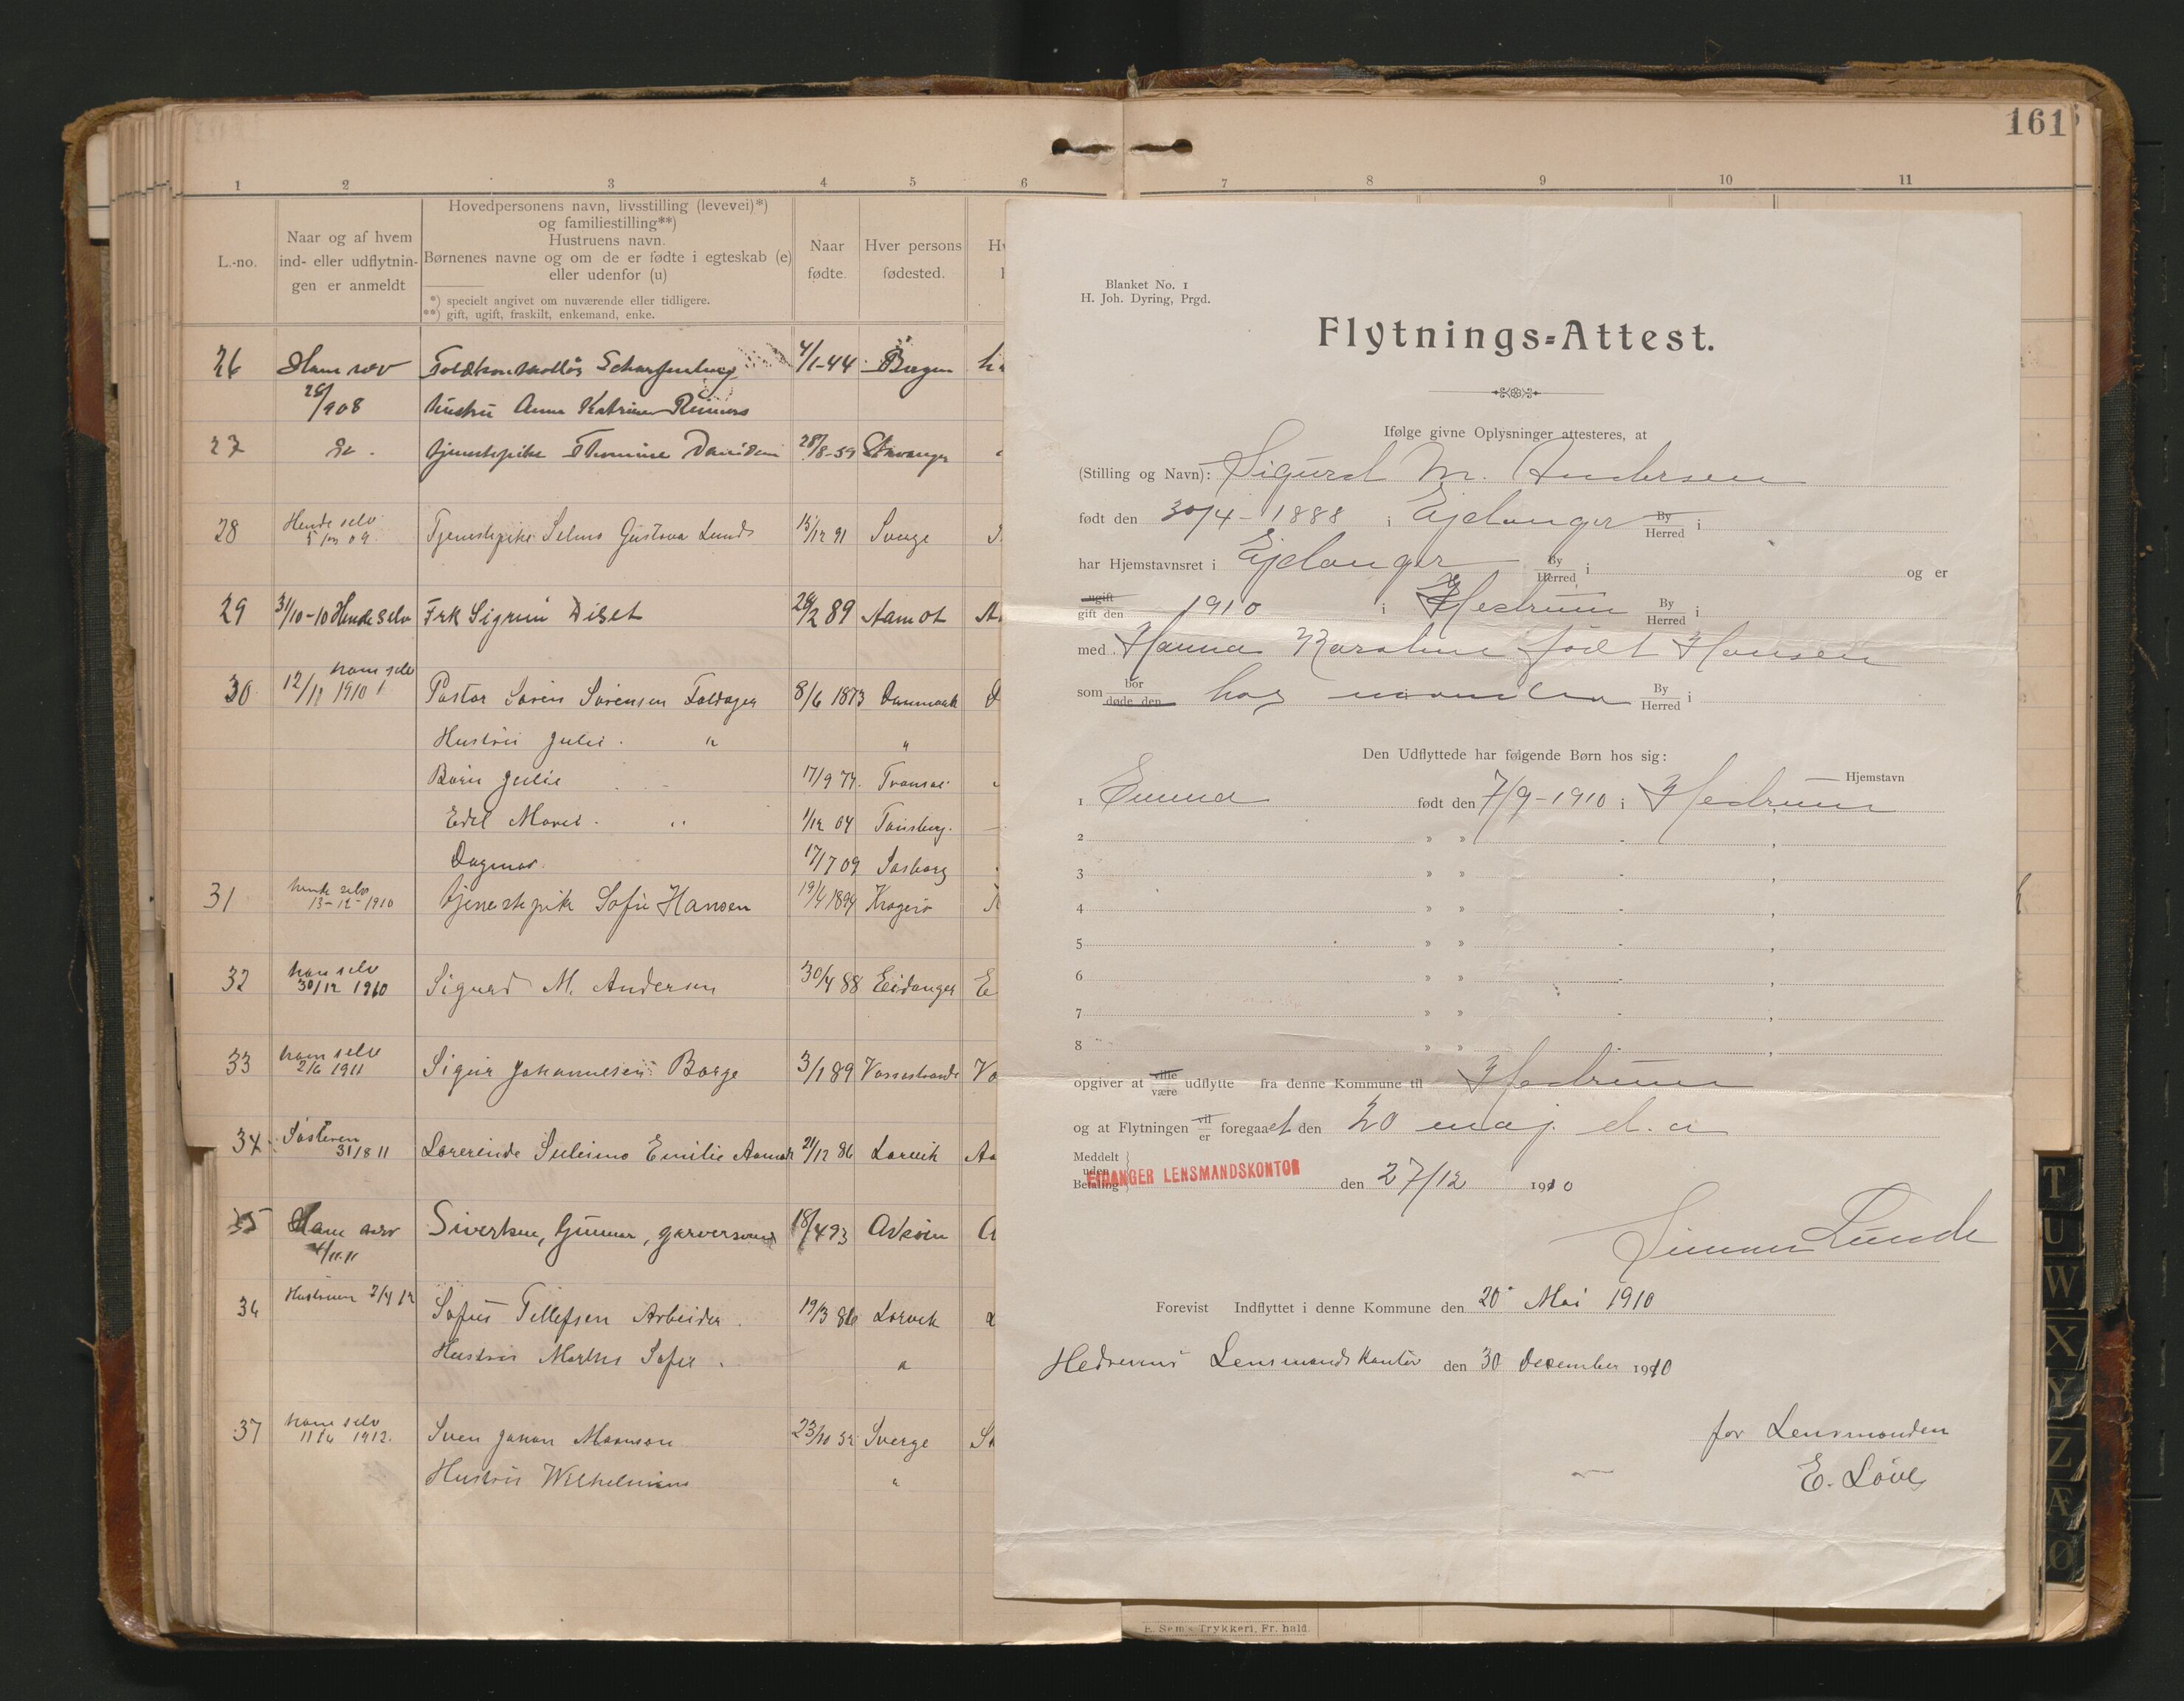 161
1 2 3 4 5 6 7 8 9 10 11
L.-no.
Naar og af hvem
ind- eller udflytnin-
gen er anmeldt
Hovedpersonens navn, livsstilling (levevei)*)
og familiestilling**)
Hustruens navn.
Børnenes navne og om de er fødte i egteskab (e)
eller udenfor (u)
*) specielt angivet om nuværende eller tidligere.
**) gift, ugift, fraskilt, enkemand, enke.
Naar
fødte.
Hver persons
fødested.
26 Ham selv Scharfenberg 4/1-44 Bergen
28/908 Hustru Anna Katrine Reimers
27 Do. tjenestepike Davidsen 28/8-59 Stavanger
28 Hende selv Tjenestepike Selma Gustava Lunds 15/12 91 Sverge
5 09.
29 31/10-10 Hende selv Frk Sigrun Diset 24/2 89 Aamot
30 12/12 1910 ham selv Pastor Søren Sørensen Foldager 8/6 1873 Danmark
Hustru Julie. " "
Børn Julie 17/9 77.
Edel Marie. " 1/12 04 Tønsberg.
Dagmar. 17/7 09
31 hende selv tjenestepike Sofie Hansen 19/4 1894 Kragerø
13-12-1910
32 ham selv Sigurd M. Andersen 30/4 88 Eidanger
30/12 1910
33 ham selv Sigur Johannesen Borge 3/1 89 Vossestrande
2/6 1911
34. Søsteren Lærerinde Emilie 21/12 86 Larvik
31/8 11
35 Ham selv Sivertsen, Gunnar, garversvend 18/4 93 Askvin
4/11.11
36 Hustruen 2/4 12 Sofus Tellefsen Arbeider. 19/3 86 Larvik
Hustru Marthe Sofie. "
37 ham selv Sven Johan 23/10 52 Sverge
11/4 1912.
Hustru Wilhelmine "
Blanket No. 1
H. Joh. Dyring, Prgd.
Flytnings-Attest.
Ifølge givne Oplysninger attesteres, at
(Stilling og Navn): Sigurd M. Andersen
født den 30/4 - 1888 i Ejdanger By Herred i
har Hjemstavnsret i Ejdanger By Herred i og er
ugift gift den 1910 i Hedrum By Herred i
med Hanna Karoline født Hansen
som bor døde den hos manden By Herred i
Den Udflyttede har følgende Børn hos sig:
Hjemstavn
1 Emma født den 7/9-1910 i Hedrum
2 » » - ,
3 » » - ,
4 » » - ,
5 » » - ,
6 » » - ,
7 » » - ,
8 » » - ,
opgiver at ville være udflytte fra denne Kommune til Hedrum
og at Flytningen vil er foregaaet den 20 maj d. a
Meddelt
uden
Betaling
EIDANGER LENSMANDSKONTOR den 27/12 1910
Simon Lunde
Forevist Indflyttet i denne Kommune den 20' Mai 1910
Hedrums Lensmandskontor den 30 December 1910
for Lensmanden
E. Løve
E. Sem's Trykkeri, Fr. hald.
T
U
W
X
Y
Z
Æ
Ø